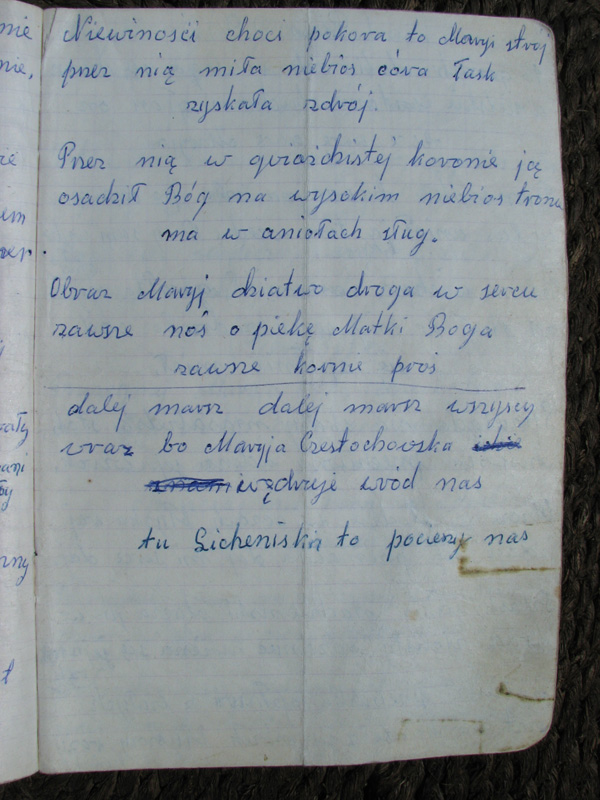 Niewinosći choci pokora to Maryi strój
przez nią miła niebios córa łask
zyskała zdrój.
Przez nią w gwiaździstej koronie ją
osadził Bóg na wysokim niebios trone
ma w aniołach sług.
Obraz Maryj dziatwo droga w sercu
zawsze noś o piekę Matki Boga
zawsze kornie proś
dalej marsz dalej marsz wszyscy
wraz bo Maryja Czestochowska
wędruje wród nas
tu Licheniska to pocieszy nas